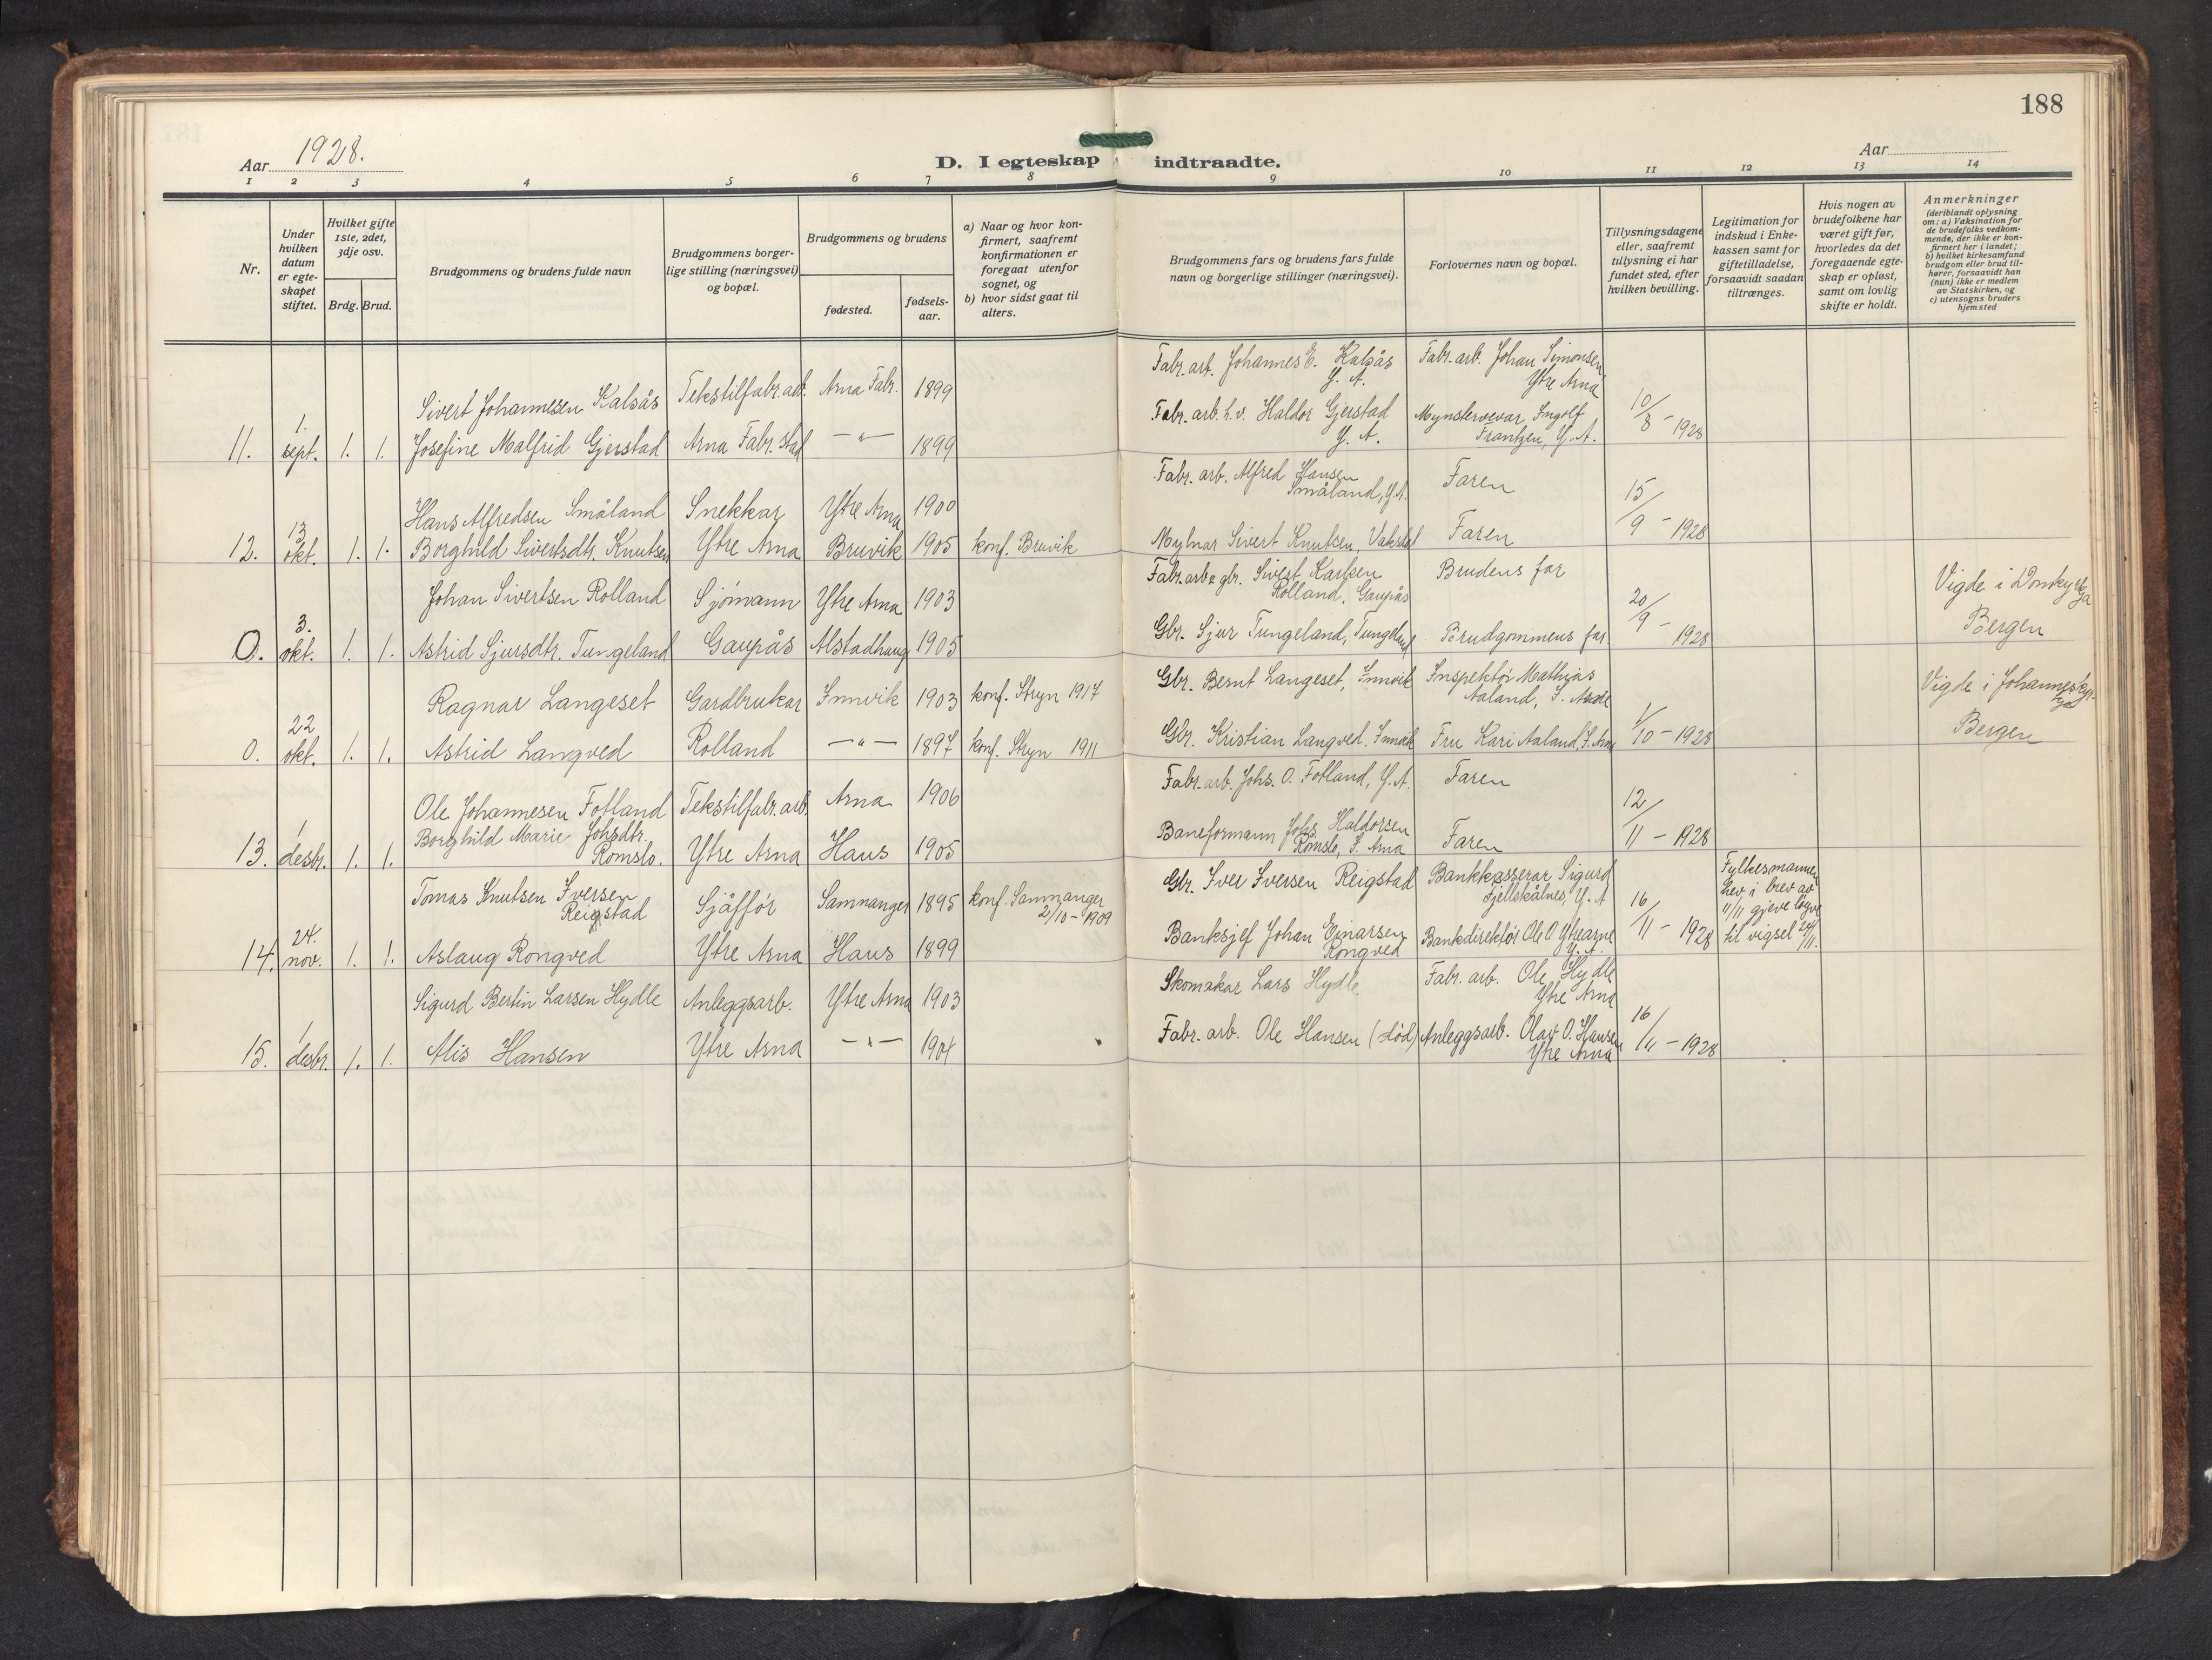 188
Aar 1928.
D. I egteskap indtraadte.
Aar
1 2 3 4 5 6 7 8 9 10 11 12 13 14
Nr.
Under hvilken datum er egte-skapet stiftet.
Hvilket gifte 1ste, 2det, 3dje osv.
Brdg. Brud.
Brudgommens og brudens fulde navn
Brudgommens borger-lige stilling (næringsvei) og bopæl.
Brudgommens og brudens
fødested.
fødsels-aar.
a) Naar og hvor kon-firmert, saafremt konfirmationen er foregaat utenfor sognet, og
b) hvor sidst gaat til alters.
Brudgommens fars og brudens fars fulde navn og borgerlige stillinger (næringsvei).
Forlovernes navn og bopæl.
Tillysningsdagene eller, saafremt tillysning ei har fundet sted, efter hvilken bevilling.
Legitimation for indskud i Enke-kassen samt for giftetilladelse, forsaavidt saadan tiltrænges.
Hvis nogen av brudefolkene har været gift før, hvorledes da det foregaaende egte-skap er opløst, samt om lovlig skifte er holdt.
Anmerkninger (deriblandt oplysning om: a) Vaksination for de brudefolks vedkom-mende, der ikke er kon-firmert her i landet; b) hvilket kirkesamfund brudgom eller brud til-hører, forsaavidt han (hun) ikke er medlem av Statskirken, og c) utensogns bruders hjemsted
Sivert Johannesen Kalsås Tekstilfabr.arb. Arna Fabr. 1899 Fabr. arb. Johannes E. Kalsås Y. A. Fabr. arb. Johan Simonsen Ytre Arna
11. 1. sept. 1. 1. Josefine Malfrid Gjerstad Arna Fabr. stad —"— 1899 Fabr. arb. h.v. Haldor Gjerstad Y. A. Mynstervevar Ingolf Frantzen, Y. A. 10/8 - 1928
Hans Alfredsen Småland Snekkar Ytre Arna 1900 Fabr. arb. Alfred Hansen Småland, Y.A. Faren
12. 13 okt. 1. 1. Borghild Sivertsdtr. Knutsen Ytre Arna Bruvik 1905 konf. Bruvik Mylnar Sivert Knutsen, Vaksdal Faren 15/9 - 1928
Johan Sivertsen Rolland Sjømann Ytre Arna 1903 Fabr. arb. og gbr. Sivert Karlsen Rolland, Gaupås Brudens far Vigde i Domkyrkja
0. 3. okt. 1. 1. Astrid Sjursdtr. Tungeland Gaupås Alstadhaug 1905 Gbr. Sjur Tungeland, Tungeland Brudgommens far 20/9 - 1928 Bergen
Ragnar Langeset Gardbrukar Innvik 1903 konf. Stryn 1917 Gbr. Bernt Langeset, Innvik Inspektør Mathias Aaland, I. Arna Vigde i Johanneskyrkja
0. 22 okt. 1. 1. Astrid Langved Rolland —"— 1897 konf. Stryn 1911 Gbr. Kristian Langved, Innvik Fru Kari Aaland, I. Arna 1/10 - 1928 Bergen
Ole Johannesen Fotland Tekstilfabr. arb. Arna 1906 Fabr. arb. Johs. O. Fotland, Y. A. Faren
13. 1 desbr. 1. 1. Borghild Marie Johsdtr. Romslo. Ytre Arna Haus 1905 Baneformann Johs. Haldorsen Romslo, I. Arna Faren 12/11 - 1928
Tomas Knutsen Iversen Reigstad Sjåffør Samnanger 1895 konf. Samnanger 2/10 - 1909 Gbr. Iver Iversen Reigstad Bankkasserar Sigurd Fjellskålnes, Y. A Fylkesmannen hev i brev av 11/11 gjeve løyve til vigsel 24/11.
14. 24. nov. 1. 1. Aslaug Rongved Ytre Arna Haus 1899 Banksjef Johan Einarsen Rongved Bankdirektør Ole O. Ytrearne Y. A. 16/11 - 1928
Sigurd Bertin Larsen Hydle Anleggsarb. Ytre Arna 1903 Skomakar Lars Hydle Fabr. arb. Ole Hydle Ytre Arna
15. 1 desbr. 1. 1. Alis Hansen Ytre Arna —"— 1904 Fabr. arb. Ole Hansen (død) Anleggsarb. Olav O. Hansen Ytre Arna 16/11 - 1928